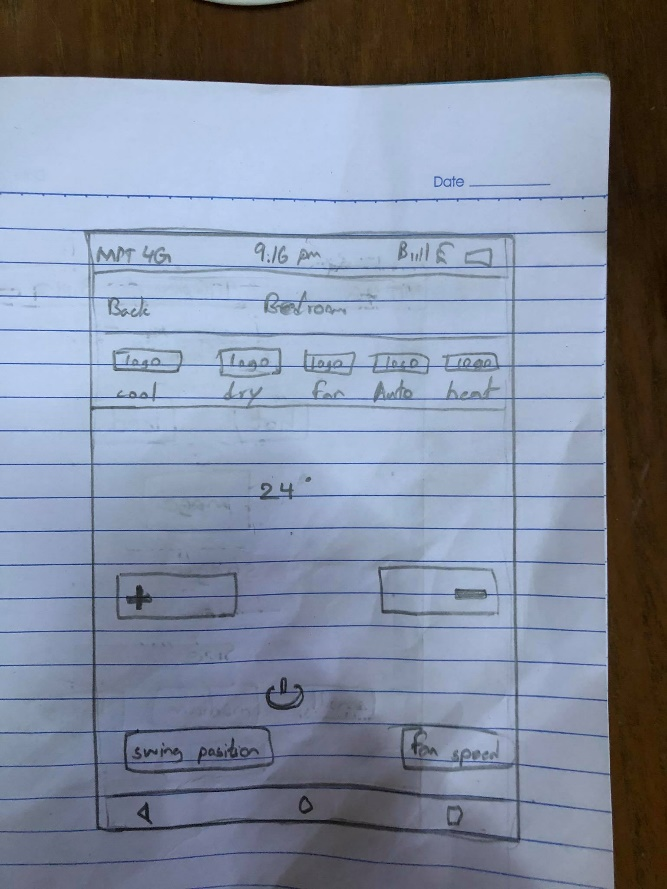 Date
MPT 4G 9.16 pm
Back Bedroom
logo logo logo logo logo
cool dry fan Auto heat
24°
+ −
swing position fan speed